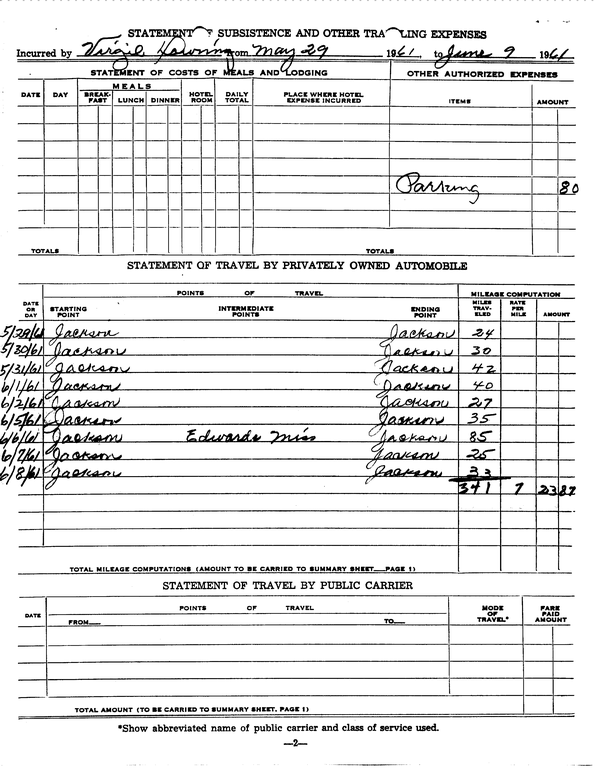 STATEMENT OF SUBSISTENCE AND OTHER TRA LING EXPENSES
Incurred by Virgil Downing from May 29 1961, to June 9 1961
STATEMENT OF COSTS OF MEALS AND LODGING OTHER AUTHORIZED EXPENSES
DATE DAY MEALS BREAK-FAST LUNCH DINNER HOTEL ROOM DAILY TOTAL PLACE WHERE HOTEL EXPENSE INCURRED ITEMS AMOUNT
Parking 80
TOTALS TOTALS
STATEMENT OF TRAVEL BY PRIVATELY OWNED AUTOMOBILE
POINTS OF TRAVEL MILEAGE COMPUTATION
DATE OR DAY STARTING POINT INTERMEDIATE POINTS ENDING POINT MILES TRAV-ELED RATE PER MILE AMOUNT
5/29/61 Jackson Jackson 24
5/30/61 Jackson Jackson 30
5/31/61 Jackson Jackson 42
6/1/61 Jackson Jackson 40
6/2/61 Jackson Jackson 27
6/5/61 Jackson Jackson 35
6/6/61 Jackson Edwards Miss Jackson 85
6/7/61 Jackson Jackson 25
6/8/61 Jackson Jackson 33
341 7 23 87
TOTAL MILEAGE COMPUTATIONS (AMOUNT TO BE CARRIED TO SUMMARY SHEET—PAGE 1)
STATEMENT OF TRAVEL BY PUBLIC CARRIER
DATE POINTS OF TRAVEL MODE OF TRAVEL* FARE PAID AMOUNT
FROM— TO—
TOTAL AMOUNT (TO BE CARRIED TO SUMMARY SHEET, PAGE 1)
*Show abbreviated name of public carrier and class of service used.
—2—